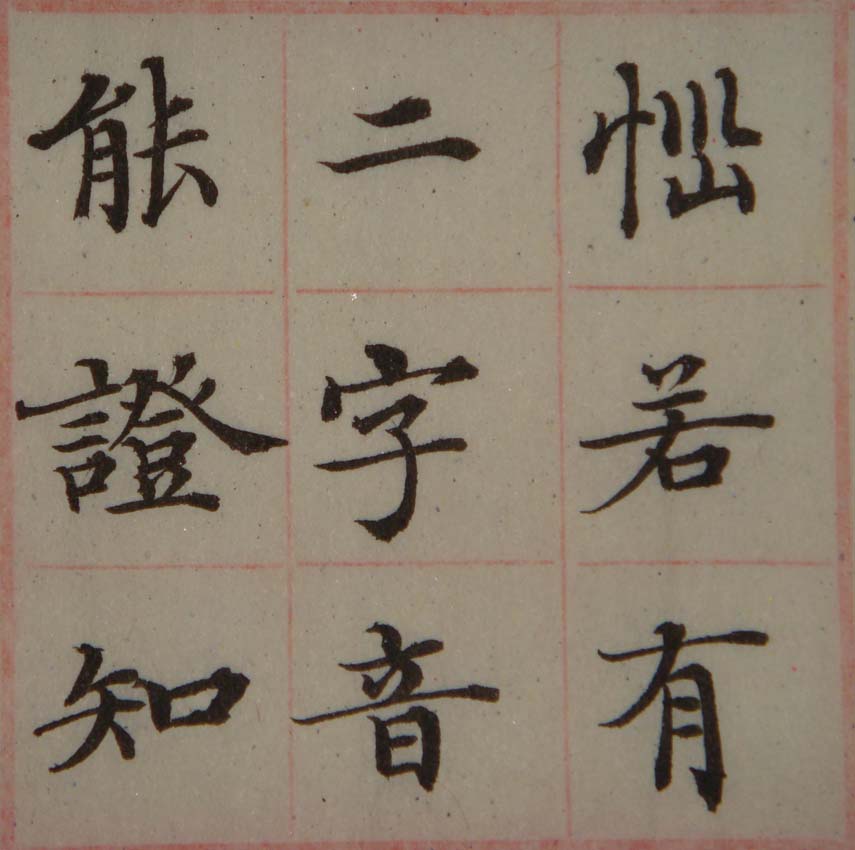 惱若有
二字音
能證知